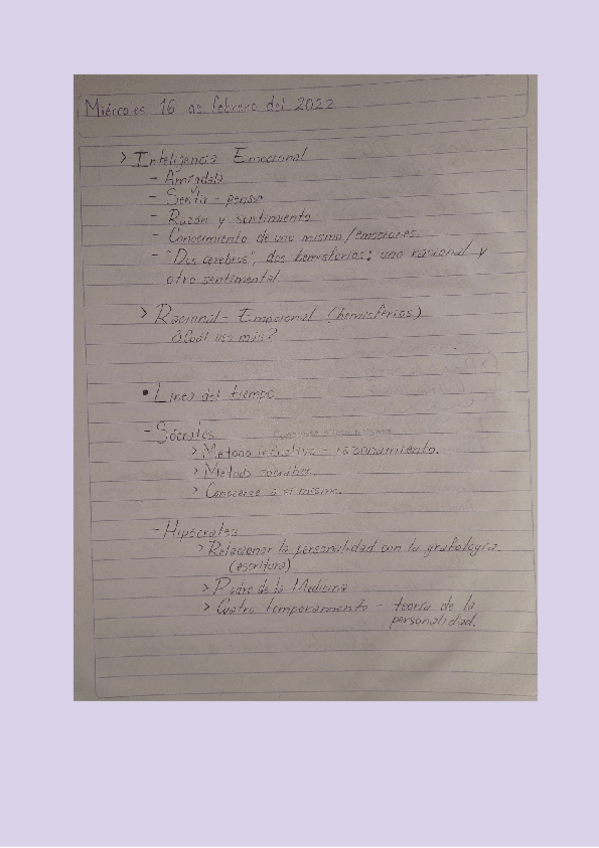 Miércoles 16 de febrero del 2022
> Inteligencia Emocional
- Amígdala
- Sentir - pensar
- Razón y sentimiento
- Conocimiento de uno mismo / emociones.
- "Dos cerebros", dos hemisferios: uno racional y
otro sentimental.
> Racional - Emocional (hemisferios)
¿Cuál uso más?
• Línea del tiempo
- Sócrates
> Metodo inductivo - razonamiento.
> Metodo
> Conocerse a si mismo.
- Hipócrates
> Relacionar la personalidad con la grafología.
(escritura)
> Padre de la Medicina
> Cuatro temperamento - teoría de la
personalidad.